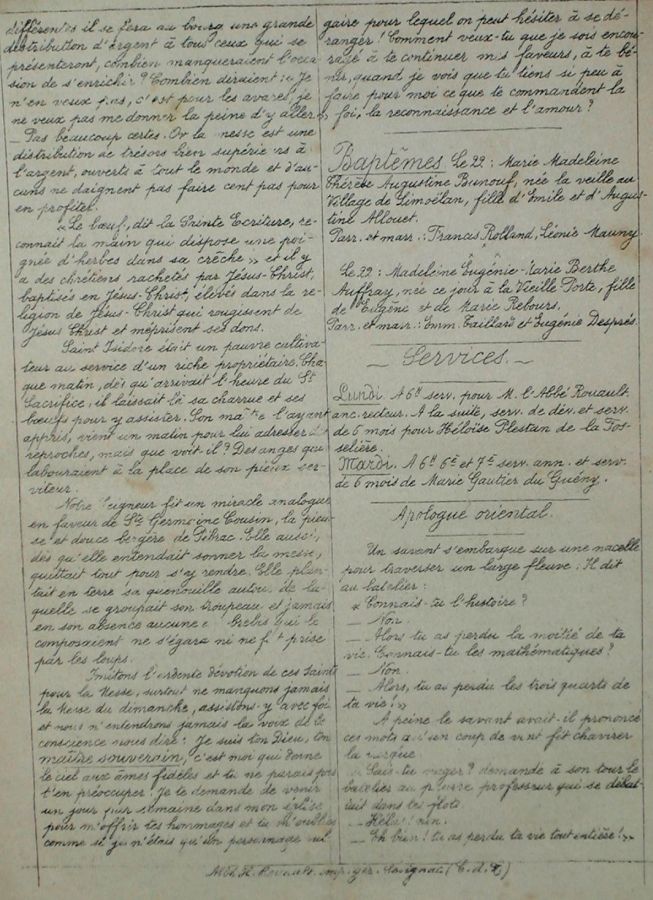 différentes il se fera au bourg une grande
distribution d'argent à tous ceux qui se
présenteront, combien manqueraient l'occa
sion de s'enrichir ? Combien diraient : Je
n'en veux pas, c'est pour les avares, je
ne veux pas me donner la peine d'y aller.
_ Pas beaucoup certes. Or la messe est une
distribution de trésors bien supérieurs à
l'argent, ouverts à tout le monde et d'au-
cuns ne daignent pas faire cent pas pour
en profiter.
"Le bœuf, dit la Sainte Ecriture, re-
connait la main qui dispose une poi-
gnée d'herbes dans sa crèche" et il y
a des chrétiens rachetés par Jésus-Christ,
baptisés en Jésus-Christ, élevés dans la re-
ligion de Jésus-Christ qui rougissent de
Jésus Christ et méprisent ses dons.
Saint Isidore était un pauvre cultiva-
teur au service d'un riche propriétaire. Cha
que matin, dès qu'arrivait l'heure du St
Sacrifice, il laissait là sa charrue et ses
bœufs pour y assister. Son maître l'ayant
appris, vient un matin pour lui adresser des
reproches, mais que voit-il ? Des anges qui
labouraient à la place de son pieux ser-
viteur.
Notre Seigneur fit un miracle analogue
en faveur de Ste Germaine Cousin, la pieu-
se et douce bergère de Pibrac. Elle aussi,
dès qu'elle entendait sonner la messe,
quittait tout pour s'y rendre. Elle plan-
tait en terre sa quenouille autour de la-
quelle se groupait son troupeau et jamais
en son absence aucune brebis qui le
composaient ne s'égara ni ne fut prise
par les loups.
Imitons l'ardente dévotion de ces Saints
pour la Messe, surtout ne manquons jamais
la Messe du dimanche, assistons-y avec foi
et nous n'entendrons jamais la voix de la
conscience nous dire : Je suis ton Dieu, ton
maître souverain, c'est moi qui donne
le ciel aux âmes fidèles et tu ne parais pas
t'en préoccuper. Je te demande de venir
un jour par semaine dans mon église
pour m'offrir tes hommages et tu
comme si je n'étais qu'un personnage vul
gaire pour lequel on peut hésiter à se dé-
ranger ! Comment veux-tu que je sois encou-
ragé à te continuer mes faveurs, à te bé-
nir, quand je vois que tu tiens si peu à
faire pour moi ce que te commandent la
foi, la reconnaissance et l'amour ?
Baptêmes Le 22 : Marie Madeleine
Thérèse Augustine Bunouf, née la veille au
Village de Limoëlan, fille d'Emile et d'Augus-
tine Allouet.
Parr. et marr. : Francis Rolland, Léonie Mauny.
Le 22 : Madeleine Eugénie-Marie Berthe
Auffray, née ce jour à la Vieille Porte, fille
de Eugène et de Marie Rebours.
Parr. et marr. : Emm. Gaillard et Eugénie Després.
_ Services. _
Lundi. A 6h serv. pour M. l'Abbé Rouault
anc. recteur. A la suite, serv. de dév. et serv.
de 6 mois pour Héloïse Plestan de la Fos-
selière.
Mardi. A 6h 6e et 7e serv. ann. et serv.
de 6 mois de Marie Gautier du Guény.
Apologue oriental.
Un savant s'embarque sur une nacelle
pour traverser un large fleuve. Il dit
au batelier :
" Connais-tu l'histoire ?
_ Non.
_ Alors tu as perdu la moitié de ta
vie. Connais-tu les mathématiques ?
_ Non.
_ Alors, tu as perdu les trois quarts de
ta vie ! "
A peine le savant avait-il prononcé
ces mots qu'un coup de vent fit chavirer
la barque.
" Sais-tu nager ? demande à son tour le
batelier au pauvre professeur qui se débat-
tait dans les flots.
_ Hélas ! Non.
_ Eh bien ! tu as perdu ta vie tout entière ! "
imp. gér. (C. d. N)